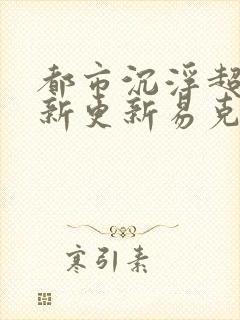 都市沉浮超
新更新易克
寒引素